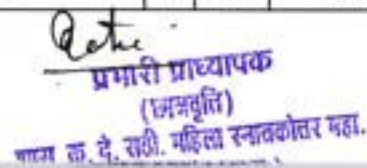 प्रभारी प्राध्यापक
(छात्रवृति)
क. दे. राठी. महिला स्नातकोत्तर महा.